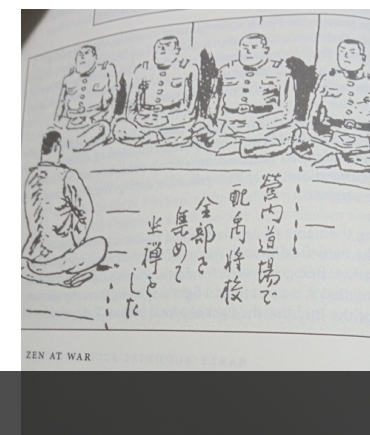 營内道場で
配角将校
全部を
集めて
坐禅を
した
ZEN AT WAR